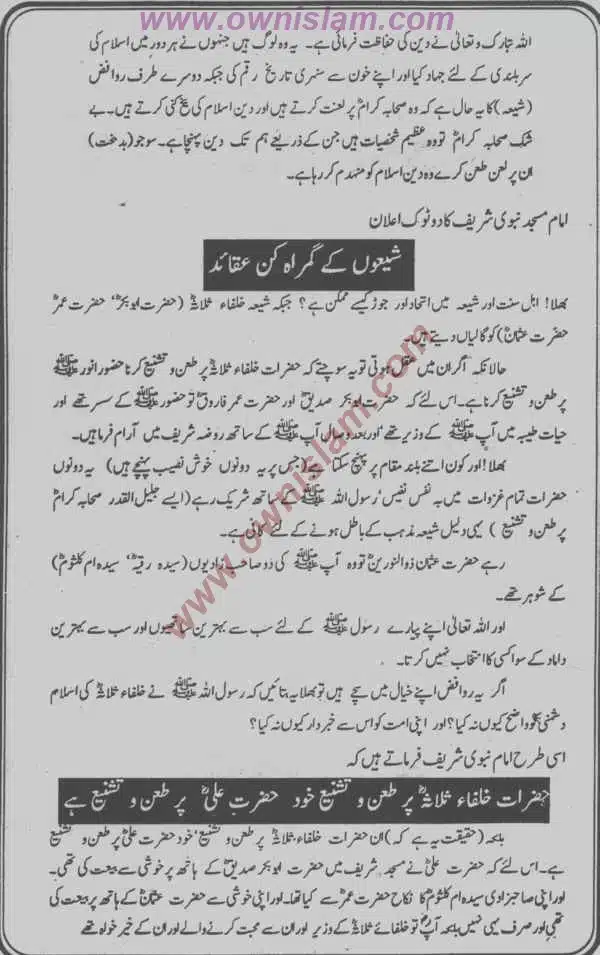 www.ownislam.com
اللہ تبارک و تعالیٰ نے دین کی حفاظت فرمائی ہے۔ یہ وہ لوگ ہیں جنہوں نے ہر دور میں اسلام کی
سربلندی کے لئے جہاد کیا اور اپنے خون سے سنہری تاریخ رقم کی جبکہ دوسرے طرف روافض
(شیعہ) کا یہ حال ہے کہ وہ صحابہ کرامؓ پر لعنت کرتے ہیں اور دین اسلام کی بیخ کنی کرتے ہیں۔ بے
شک صحابہ کرامؓ تو وہ عظیم شخصیات ہیں جن کے ذریعے ہم تک دین پہنچا ہے۔ سو جو (بدبخت)
ان پر لعن طعن کرے وہ دین اسلام کو منہدم کر رہا ہے۔
امام مسجد نبوی شریف کا دو ٹوک اعلان
شیعوں کے گمراہ کن عقائد
بھلا! اہل سنت اور شیعہ میں اتحاد اور جوڑ کیسے ممکن ہے؟ جبکہ شیعہ خلفاء ثلاثہؓ (حضرت ابوبکرؓ، حضرت عمرؓ
حضرت عثمانؓ) کو گالیاں دیتے ہیں۔
حالانکہ اگر ان میں عقل ہوتی تو یہ سوچتے کہ حضرات خلفاء ثلاثہؓ پر طعن و تشنیع کرنا حضور انور ﷺ
پر طعن و تشنیع کرنا ہے۔ اس لئے کہ حضرت ابوبکر صدیقؓ اور حضرت عمر فاروقؓ تو حضور ﷺ کے سسر تھے اور
حیات طیبہ میں آپ ﷺ کے وزیر تھے اور بعد وصال آپ ﷺ کے ساتھ روضہ شریف میں آرام فرما ہیں۔
بھلا! اور کون اتنے بلند مقام پر پہنچ سکتا ہے (جس پر یہ دونوں خوش نصیب پہنچے ہیں) یہ دونوں
حضرات تمام غزوات میں بہ نفس نفیس رسول اللہ ﷺ کے ساتھ شریک رہے (ایسے جلیل القدر صحابہ کرامؓ
پر طعن و تشنیع) یہی دلیل شیعہ مذہب کے باطل ہونے کے لئے کافی ہے۔
رہے حضرت عثمان ذوالنورینؓ تو وہ آپ ﷺ کی دو صاحب زادیوں (سیدہ رقیہؓ، سیدہ ام کلثومؓ)
کے شوہر تھے۔
اور اللہ تعالیٰ اپنے پیارے رسول ﷺ کے لئے سب سے بہترین ساتھیوں اور سب سے بہترین
داماد کے سوا کسی کا انتخاب نہیں کرتا۔
اگر یہ روافض اپنے خیال میں سچے ہیں تو بھلا یہ بتائیں کہ رسول اللہ ﷺ نے خلفاء ثلاثہؓ کی اسلام
دشمنی کو واضح کیوں نہ کیا؟ اور اپنی امت کو اس سے خبردار کیوں نہ کیا؟
اسی طرح امام نبوی شریف فرماتے ہیں کہ
حضرات خلفاء ثلاثہؓ پر طعن و تشنیع خود حضرت علیؓ پر طعن و تشنیع ہے
بلکہ (حقیقت یہ ہے کہ) ان حضرات خلفاء ثلاثہؓ پر طعن و تشنیع، خود حضرت علیؓ پر طعن و تشنیع
ہے۔ اس لئے کہ حضرت علیؓ نے مسجد شریف میں حضرت ابوبکر صدیقؓ کے ہاتھ پر خوشی سے بیعت کی تھی۔
اور اپنی صاحبزادی سیدہ ام کلثومؓ کا نکاح حضرت عمرؓ سے کیا تھا۔ اور اپنی خوشی سے حضرت عثمانؓ کے ہاتھ پر بیعت کی
تھی اور صرف یہی نہیں بلکہ آپؓ تو خلفائے ثلاثہؓ کے وزیر اور ان سے محبت کرنے والے اور ان کے خیر خواہ تھے
www.ownislam.com